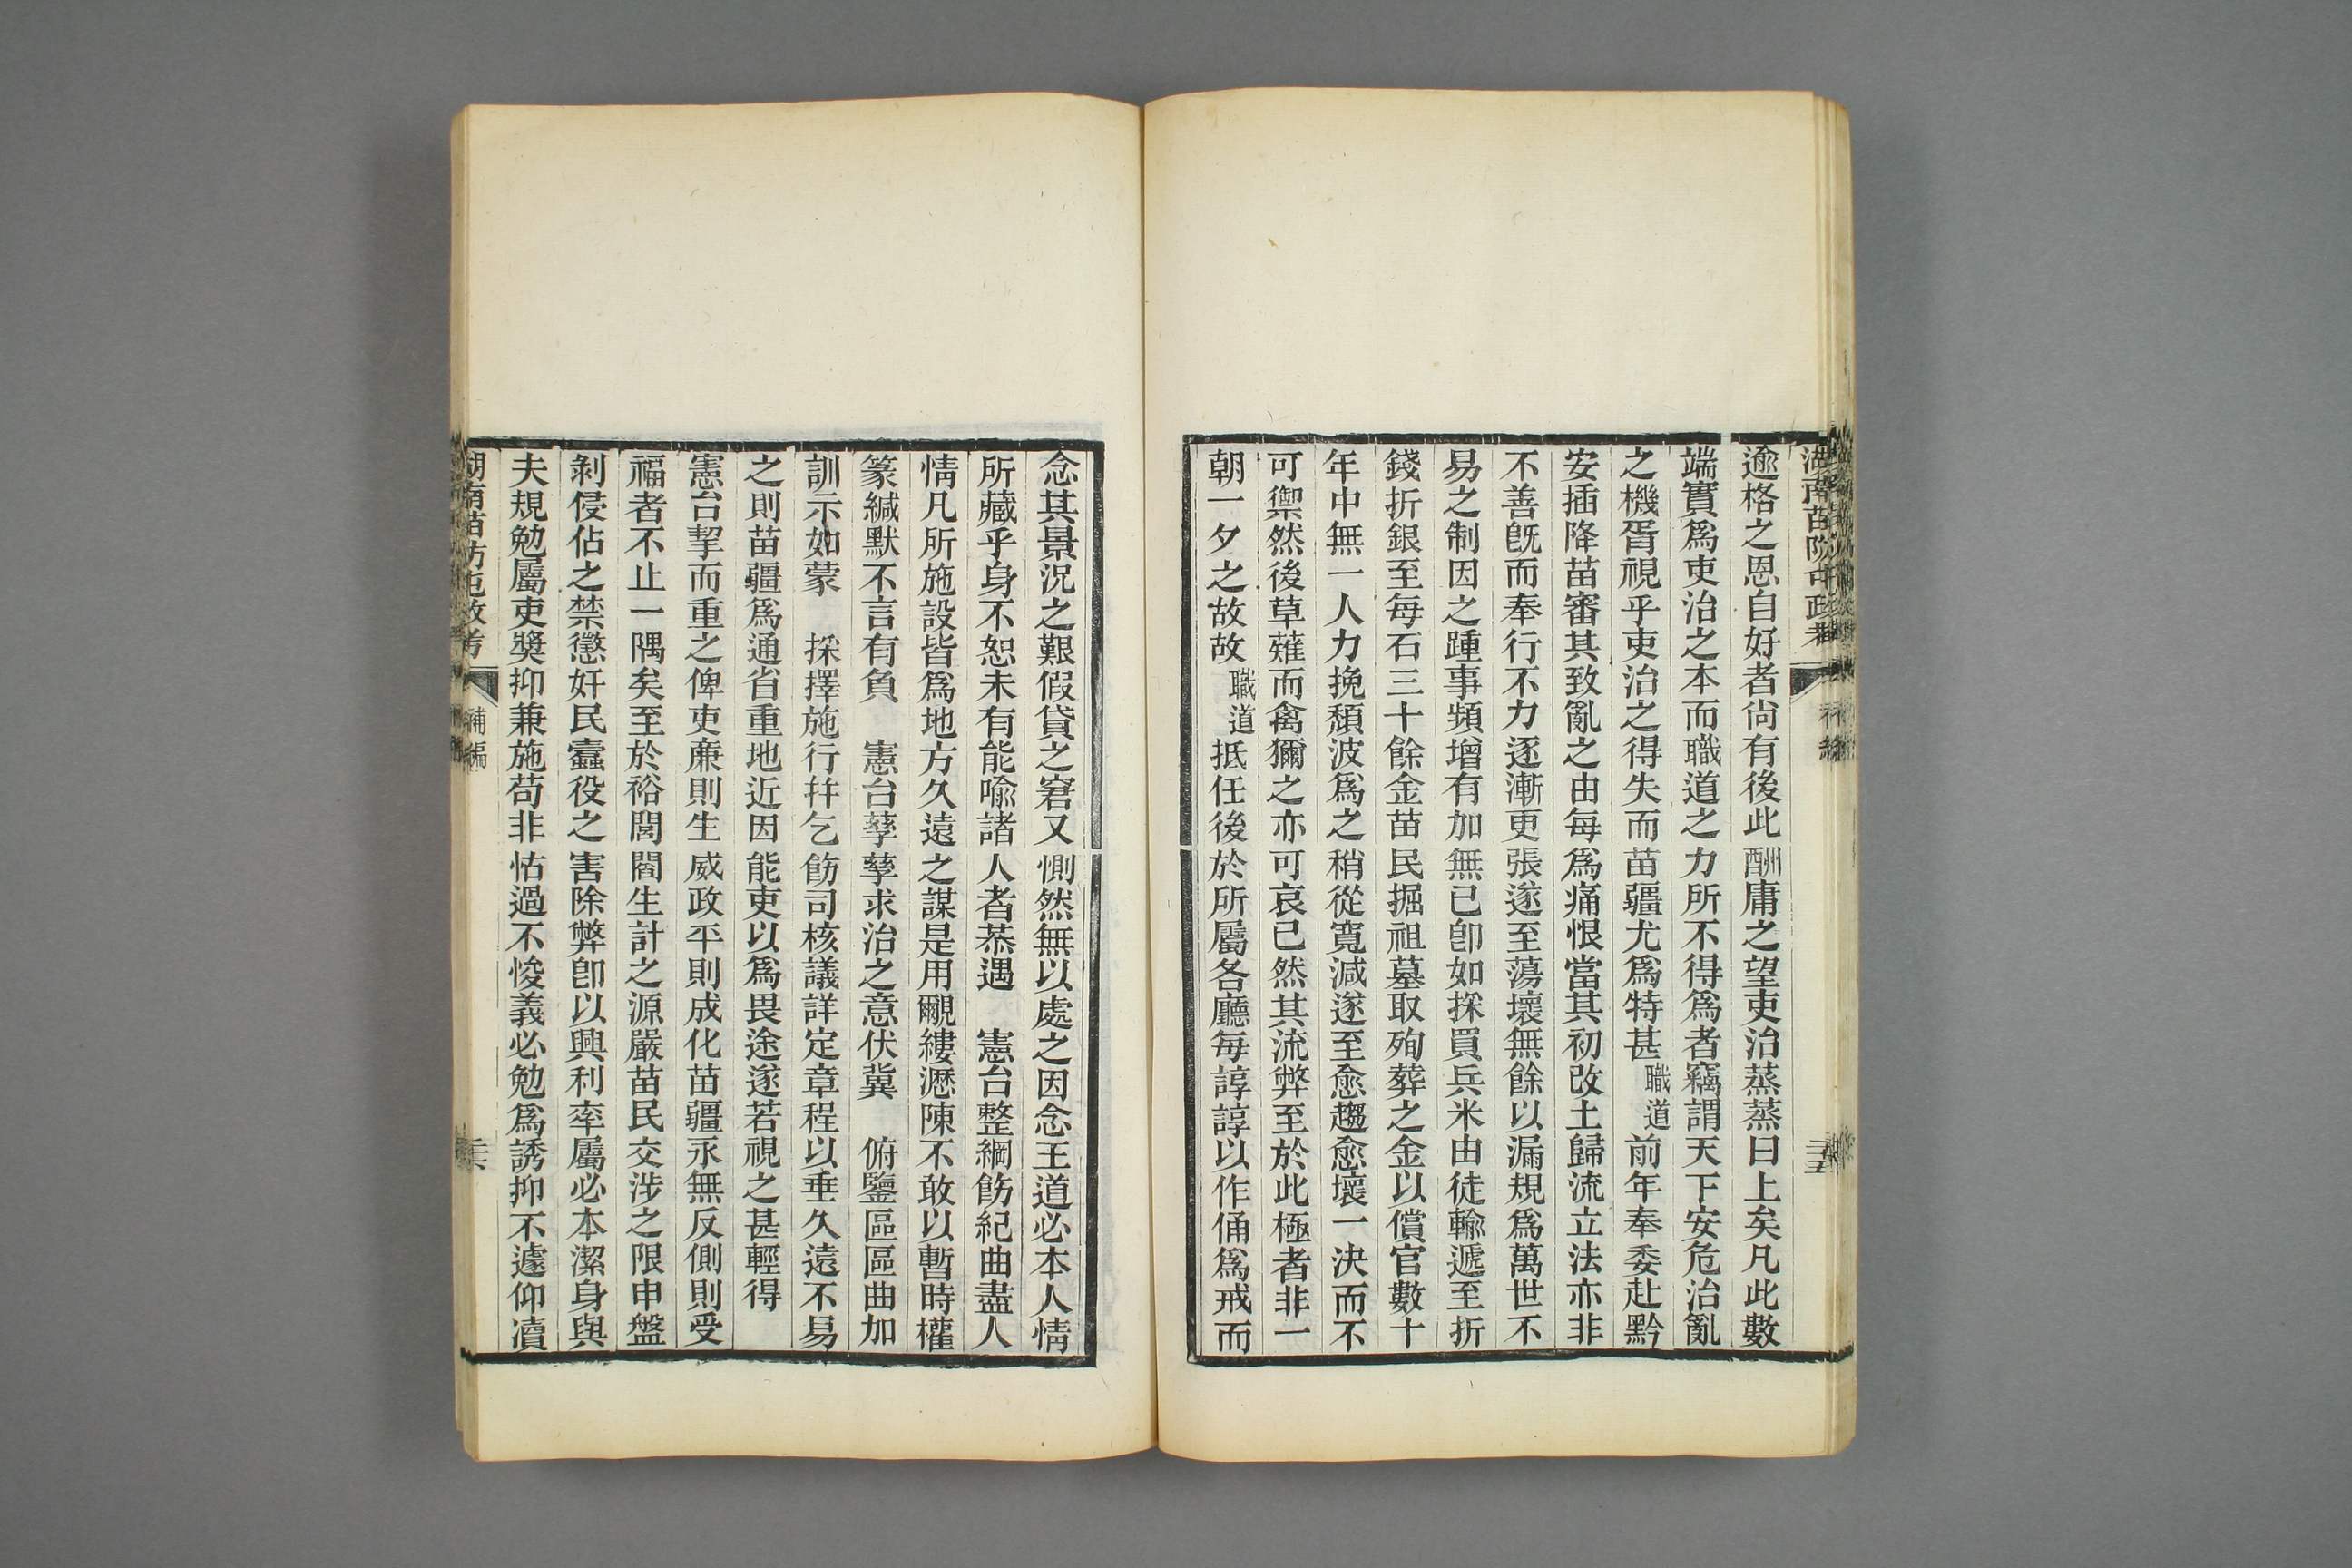 湖南苗防屯政考
補編
三五
逾格之恩自好者尙有後此酬庸之望吏治蒸蒸日上矣凡此數
端實爲吏治之本而職道之力所不得爲者竊謂天下安危治亂
之機胥視乎吏治之得失而苗疆尤爲特甚職道前年奉委赴黔
安插降苗審其致亂之由每爲痛恨當其初改土歸流立法亦非
不善旣而奉行不力逐漸更張遂至蕩壞無餘以漏規爲萬世不
易之制因之踵事頻增有加無已卽如採買兵米由徒輸遞至折
錢折銀至每石三十餘金苗民掘祖墓取殉葬之金以償官數十
年中無一人力挽頹波爲之稍從寬減遂至愈趨愈壞一決而不
可禦然後草薙而禽獮之亦可哀已然其流弊至於此極者非一
朝一夕之故故職道抵任後於所屬各廳每諄諄以作俑爲戒而
念其景況之艱假貸之窘又惻然無以處之因念王道必本人情
所藏乎身不恕未有能喻諸人者恭遇　憲台整綱飭紀曲盡人
情凡所施設皆爲地方久遠之謀是用覼縷瀝陳不敢以暫時權
篆緘默不言有負　憲台孳孳求治之意伏冀　俯鑒區區曲加
訓示如蒙　採擇施行并乞飭司核議詳定章程以垂久遠不易
之則苗疆爲通省重地近因能吏以爲畏途遂若視之甚輕得
憲台挈而重之俾吏廉則生威政平則成化苗疆永無反側則受
福者不止一隅矣至於裕閭閻生計之源嚴苗民交涉之限申盤
剝侵佔之禁懲奸民蠹役之害除弊卽以興利率屬必本潔身與
夫規勉屬吏獎抑兼施苟非怙過不悛義必勉爲誘抑不遽仰凟
湖南苗防屯政考
補編
三六